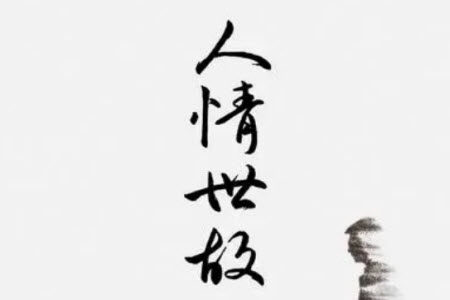 人情世故